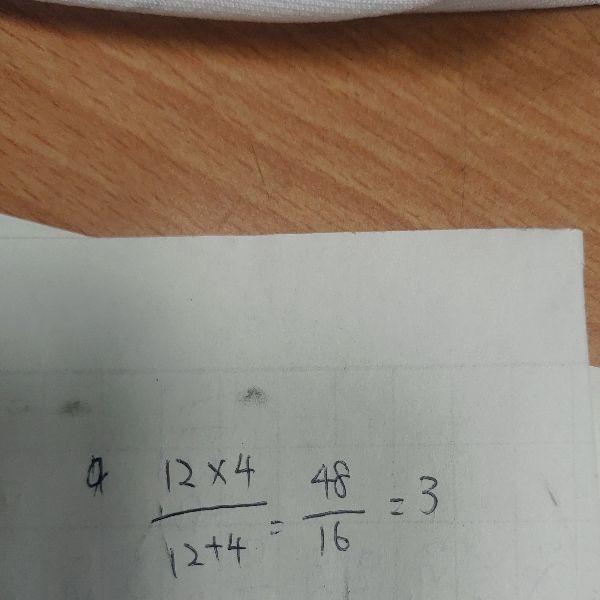 12×4 / 12+4 = 48 / 16 = 3